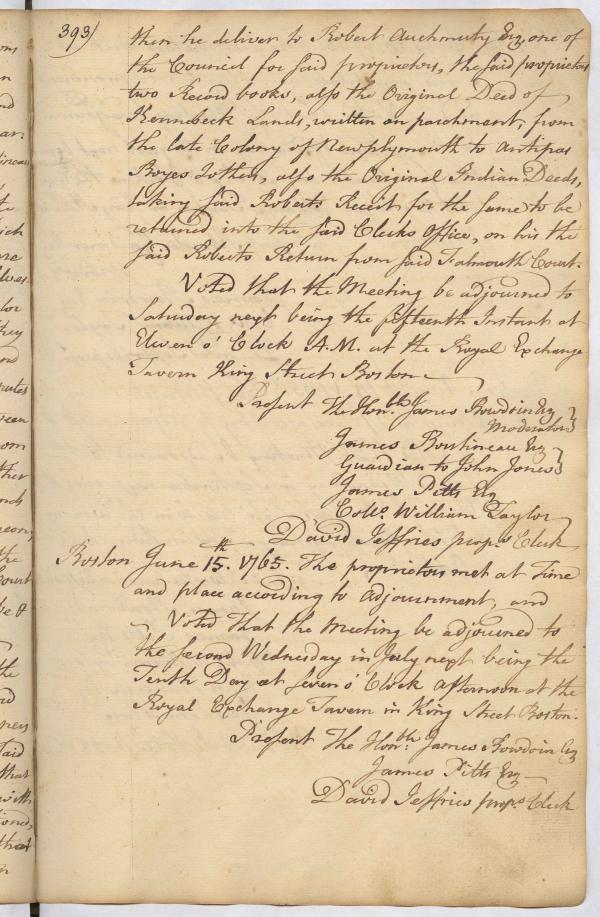 393)
then he deliver to Robert Auchmuty Esq one of
the Council for said proprietors, the said proprietors
two Record books, also the Original Deed of
Kennebeck Lands, written on parchment, from
the late Colony of Newplymouth to Antipas
Boyes & others, also the Original Indian Deeds,
taking said Roberts Receit for the same to be
returned into the said Clerks Office, on his the
said Roberts Return from said Falmouth Court.
Voted that the Meeting be adjourned to
Saturday next being the fifteenth Instant at
Eleven o' Clock A.M. at the Royal Exchange
Tavern King Street Boston
Present The Honble James Bowdoin Esq
Moderator
James Boutineau Esq
Guardian to John Jones
James Pitts Esq
Colo. William Taylor
David Jeffries props Clerk
Boston June 15th. 1765. The proprietors met at Time
and place according to adjournment, and
Voted That the Meeting be adjourned to
the second Wednesday in July next being the
Tenth Day at seven o' Clock afternoon at the
Royal Exchange Tavern in King Street Boston.
Present The Honble James Bowdoin Esq
James Pitts Esq
David Jeffries props Clerk